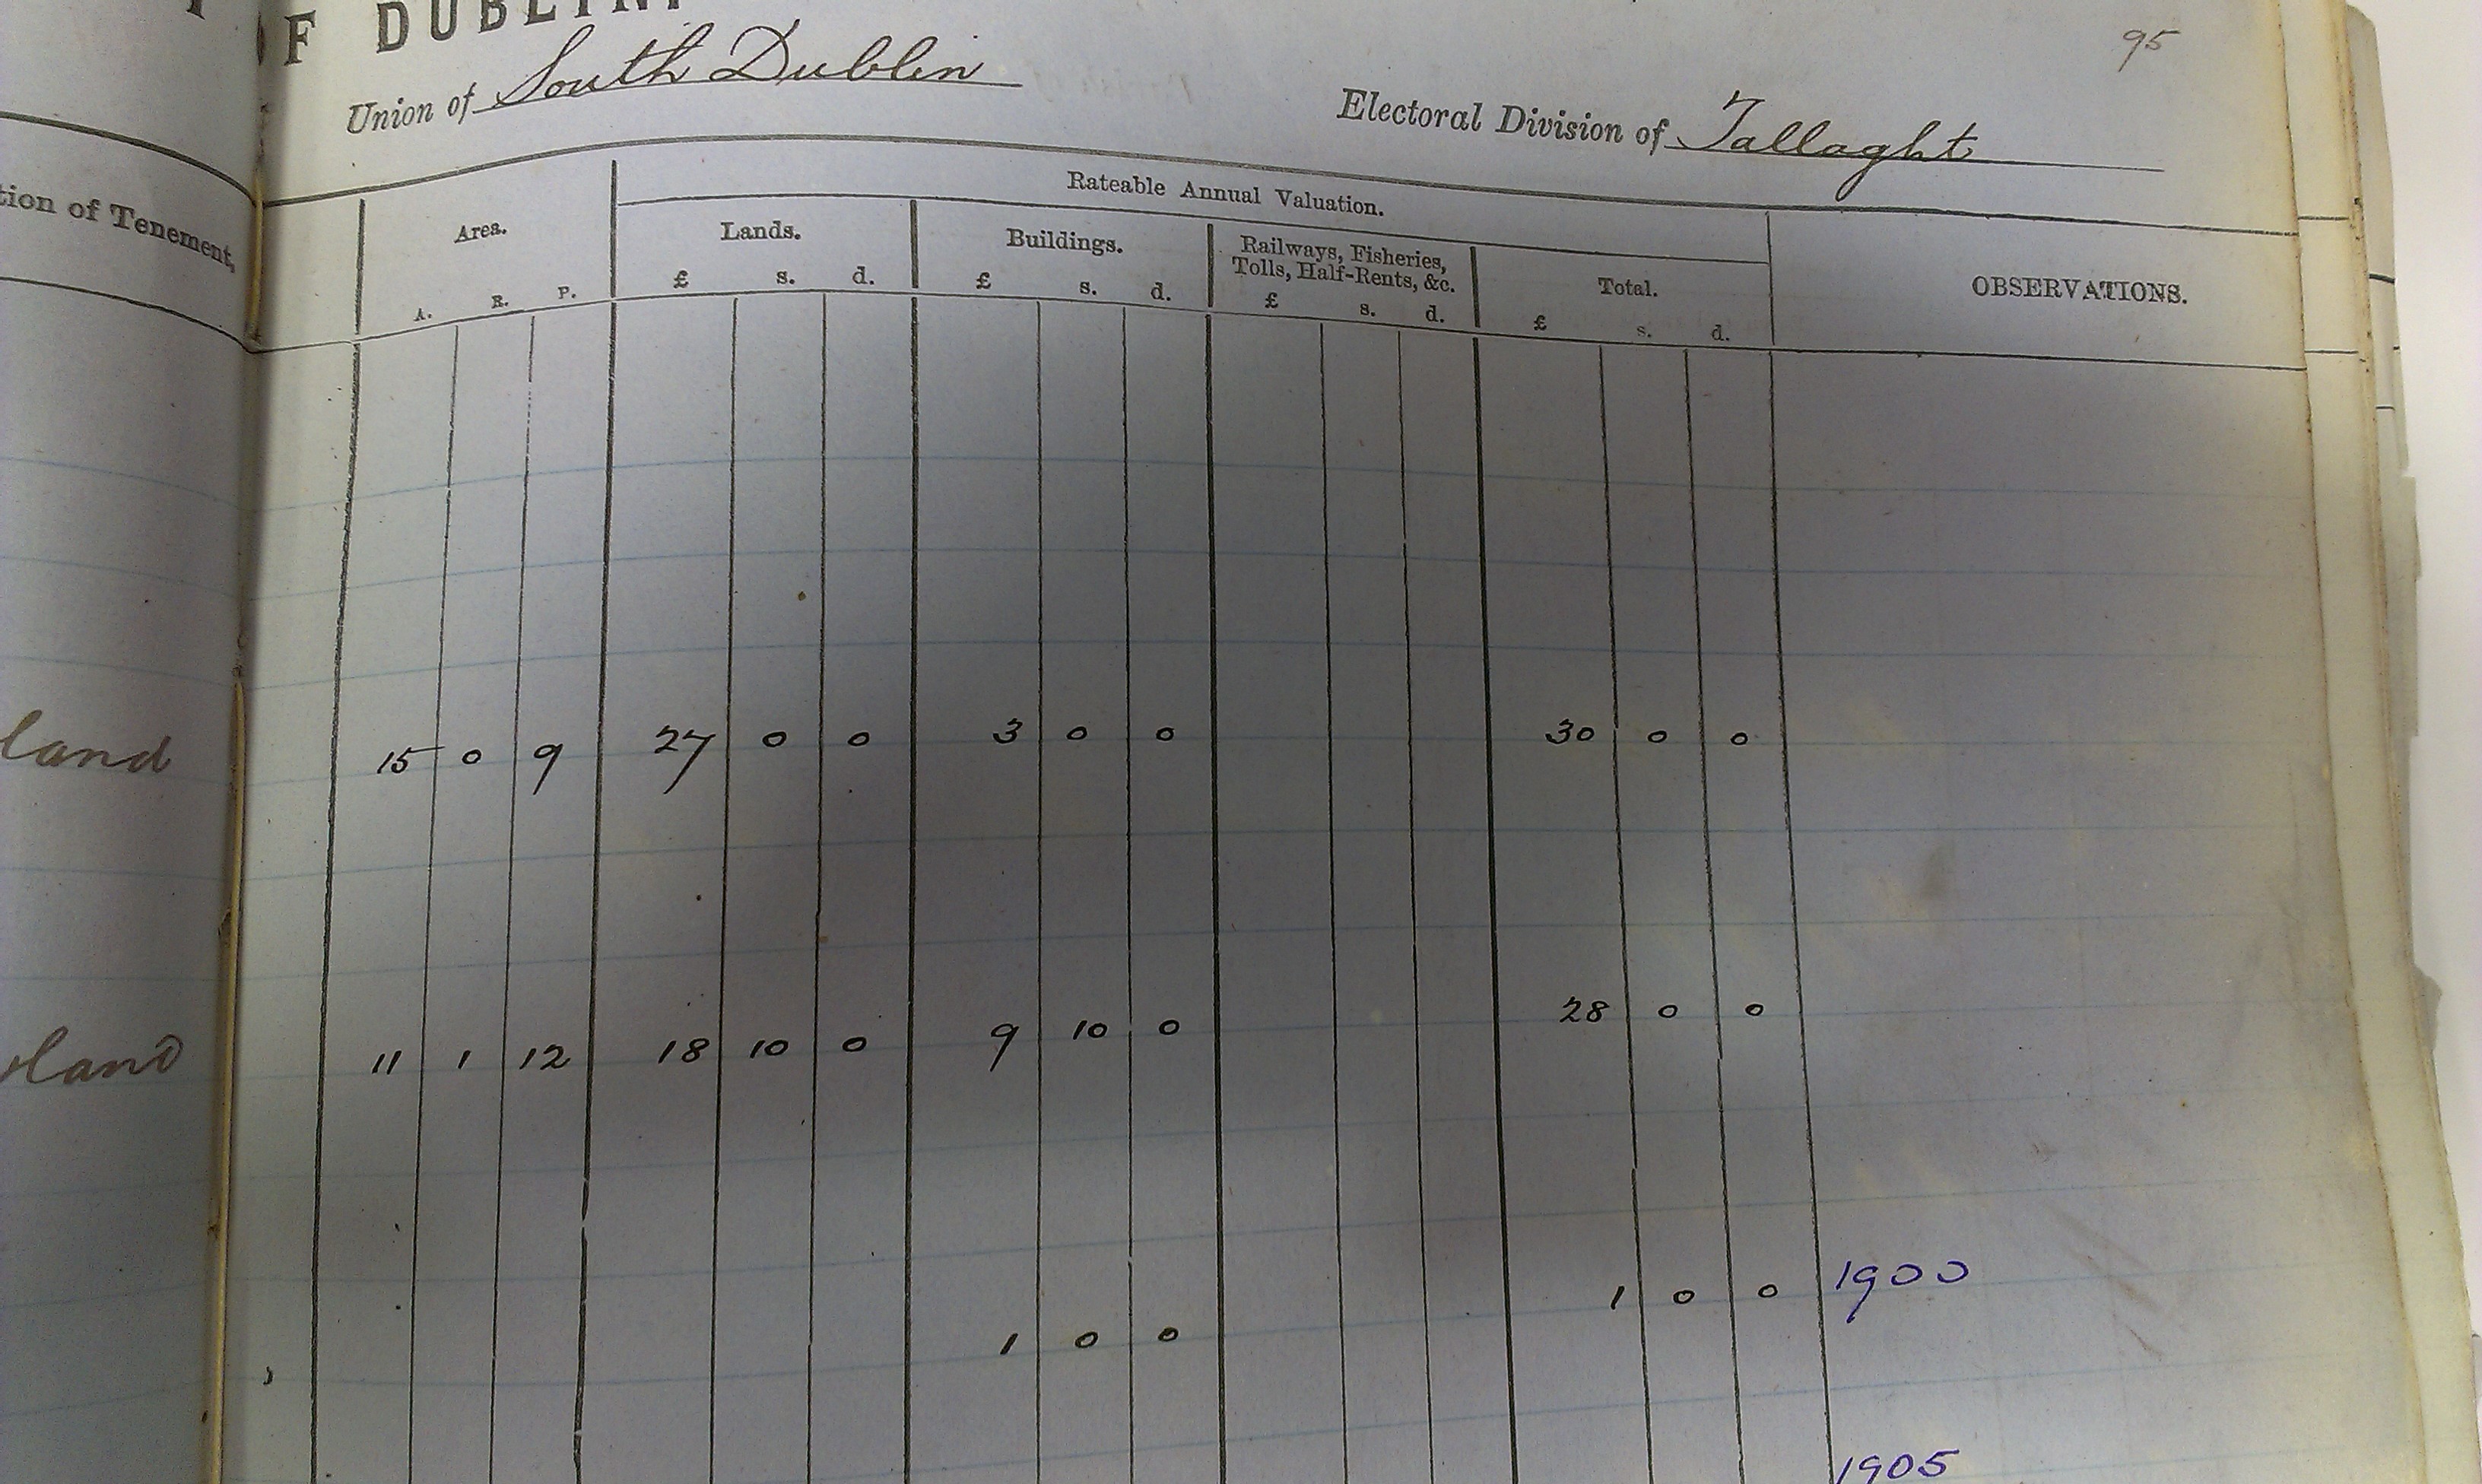 OF DUBLIN.
95
Union of South Dublin
Electoral Division of Tallaght
tion of Tenement,
Area.
Rateable Annual Valuation.
OBSERVATIONS.
Lands.
Buildings.
Railways, Fisheries,
Tolls, Half-Rents, &c.
Total.
A. R. P. £ s. d. £ s. d. £ s. d. £ s. d.
land 15 0 9 27 0 0 3 0 0 30 0 0
land 11 1 12 18 10 0 9 10 0 28 0 0
1 0 0 1 0 0 1900
1905